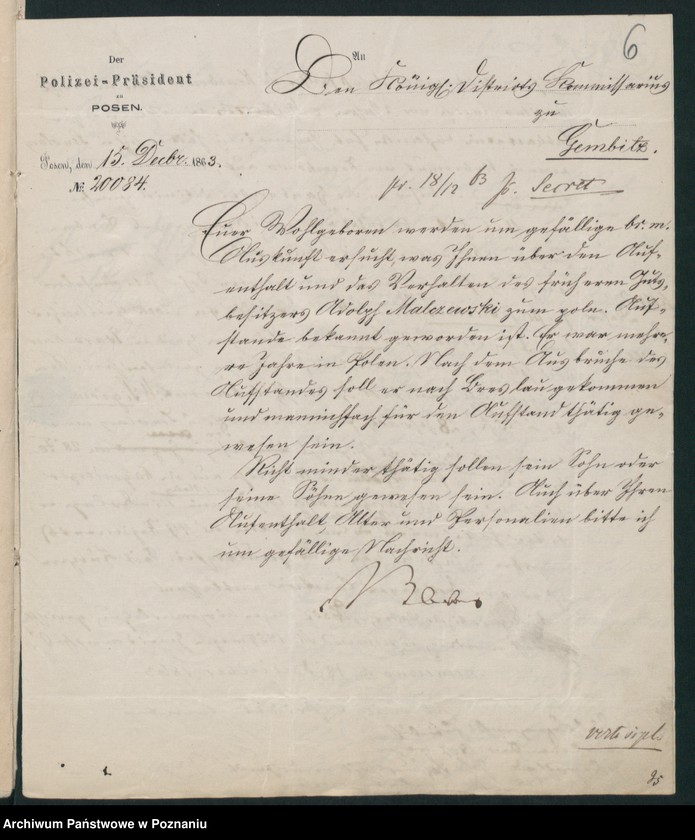 6
Der
Polizei-Präsident
zu
POSEN.
Posen, den 15. Decbr. 1863.
№ 20084.
An
Den Königl. Districts Kommissarius
zu
Gembitz.
pr. 18/12 63 J. Secret
Euer Wohlgeboren werden um gefällige br. m.
Auskunft ersucht, was Ihnen über den Auf-
enthalt und das Verhalten des früheren Guts-
besitzers Adolph Malczewski zum poln. Auf-
stande bekannt geworden ist. Er war mehre-
re Jahre in Polen. Nach dem Ausbruche des
Aufstandes soll er nach Breslau gekommen
und mannichfach für den Aufstand thätig ge-
wesen sein.
Nicht minder thätig sollen sein Sohn oder
seine Söhne gewesen sein. Auch über Ihren
Aufenthalt, Alter und Personalien bitte ich
um gefällige Nachricht.
verte
95
Archiwum Państwowe w Poznaniu